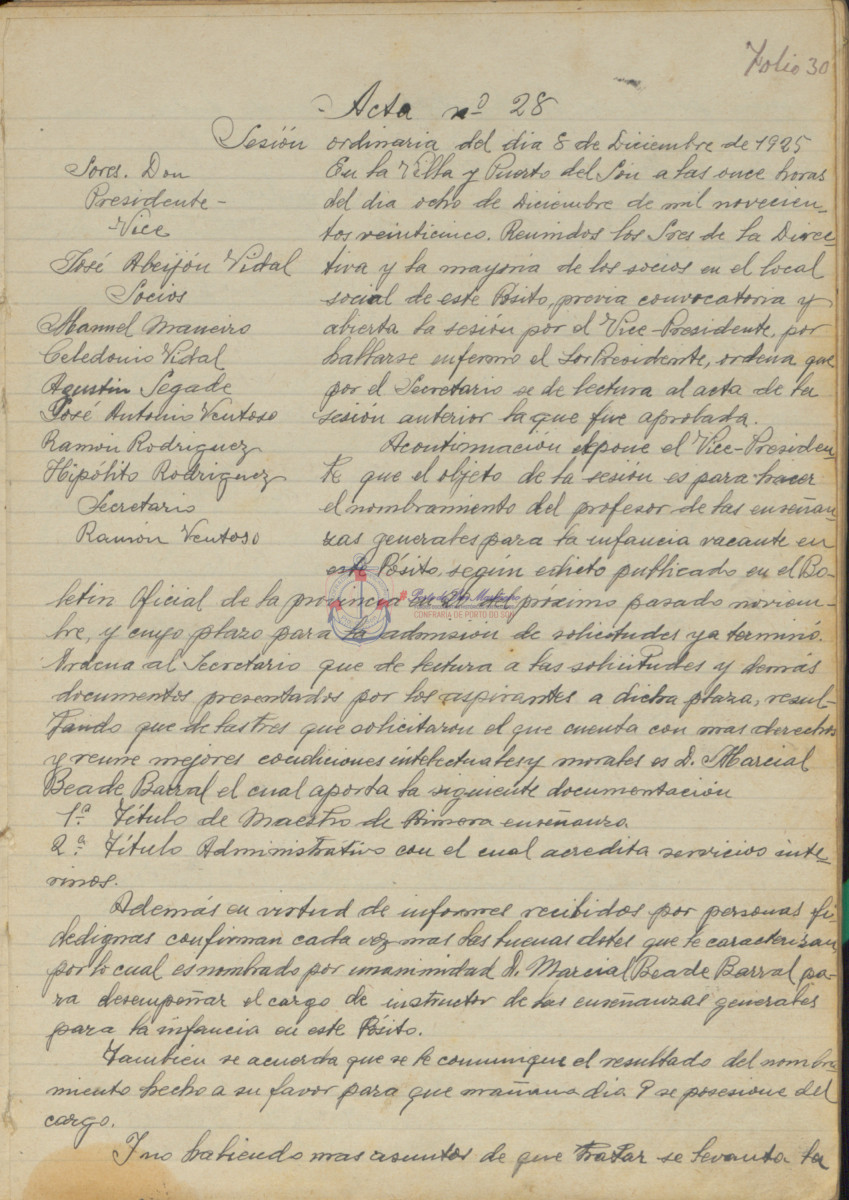 Folio 30
Acta nº 28
Sesión ordinaria del dia 8 de Diciembre de 1925
Sores. Don
Presidente-
Vice
José Abeijón Vidal
Socios
Manuel Maneiro
Celedonio Vidal
Agustin Segade
José Antonio Ventoso
Ramón Rodriguez
Hipólito Rodriguez
Secretario
Ramón Ventoso
En la Villa y Puerto del Son a las once horas
del dia ocho de Diciembre de mil novecien-
tos veinticinco. Reunidos los Sres de la Direc-
tiva y la mayoria de los socios en el local
social de este Pósito, previa convocatoria y
abierta la sesión por el Vice-Presidente, por
hallarse enfermo el Sor Presidente, ordena que
por el Secretario se de lectura al acta de la
sesión anterior la que fue aprobada.
Acontinuación expone el Vice-Presiden-
te que el objeto de la sesión es para hacer
el nombramiento del profesor de las enseñan-
zas generales para la infancia vacante en
este Pósito, según edicto publicado en el Bo-
letin Oficial de la provincia del próximo pasado noviem-
bre, y cuyo plazo para la admision de solicitudes ya terminó.
Ordena al Secretario que de lectura a las solicitudes y demás
documentos presentados por los aspirantes a dicha plaza, resul-
tando que de las tres que solicitaron el que cuenta con mas derechos
y reune mejores condiciones intelectuales y morales es D. Marcial
Beade Barral el cual aporta la siguiente documentación
1ª Título de Maestro de Primera enseñanza.
2ª Título Administrativo con el cual acredita servicios inte-
rinos.
Además en virtud de informes recibidos por personas fi-
dedignas confirman cada vez mas las buenas dotes que le caracterizan,
por lo cual es nombrado por unaminidad D. Marcial Beade Barral pa-
ra desempeñar el cargo de instructor de las enseñanzas generales
para la infancia en este Pósito.
Tambien se acuerda que se le comunique el resultado del nombra
miento hecho a su favor para que mañana dia 9 se posesione del
cargo.
I no habiendo mas asuntos de que tratar se levanta la
CONFRARIA DE PORTO DO SON